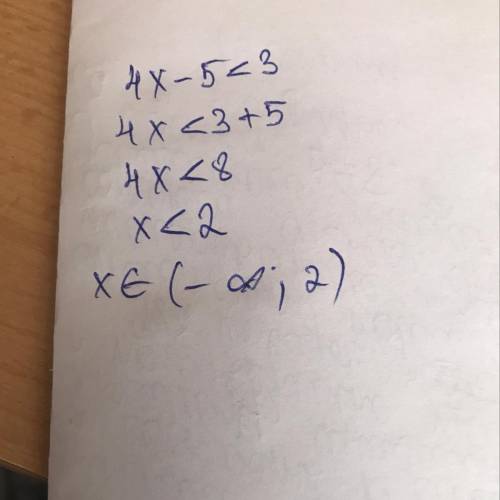 4x - 5 < 3
4x < 3 + 5
4x < 8
x < 2
x ∈ (- ∞; 2)